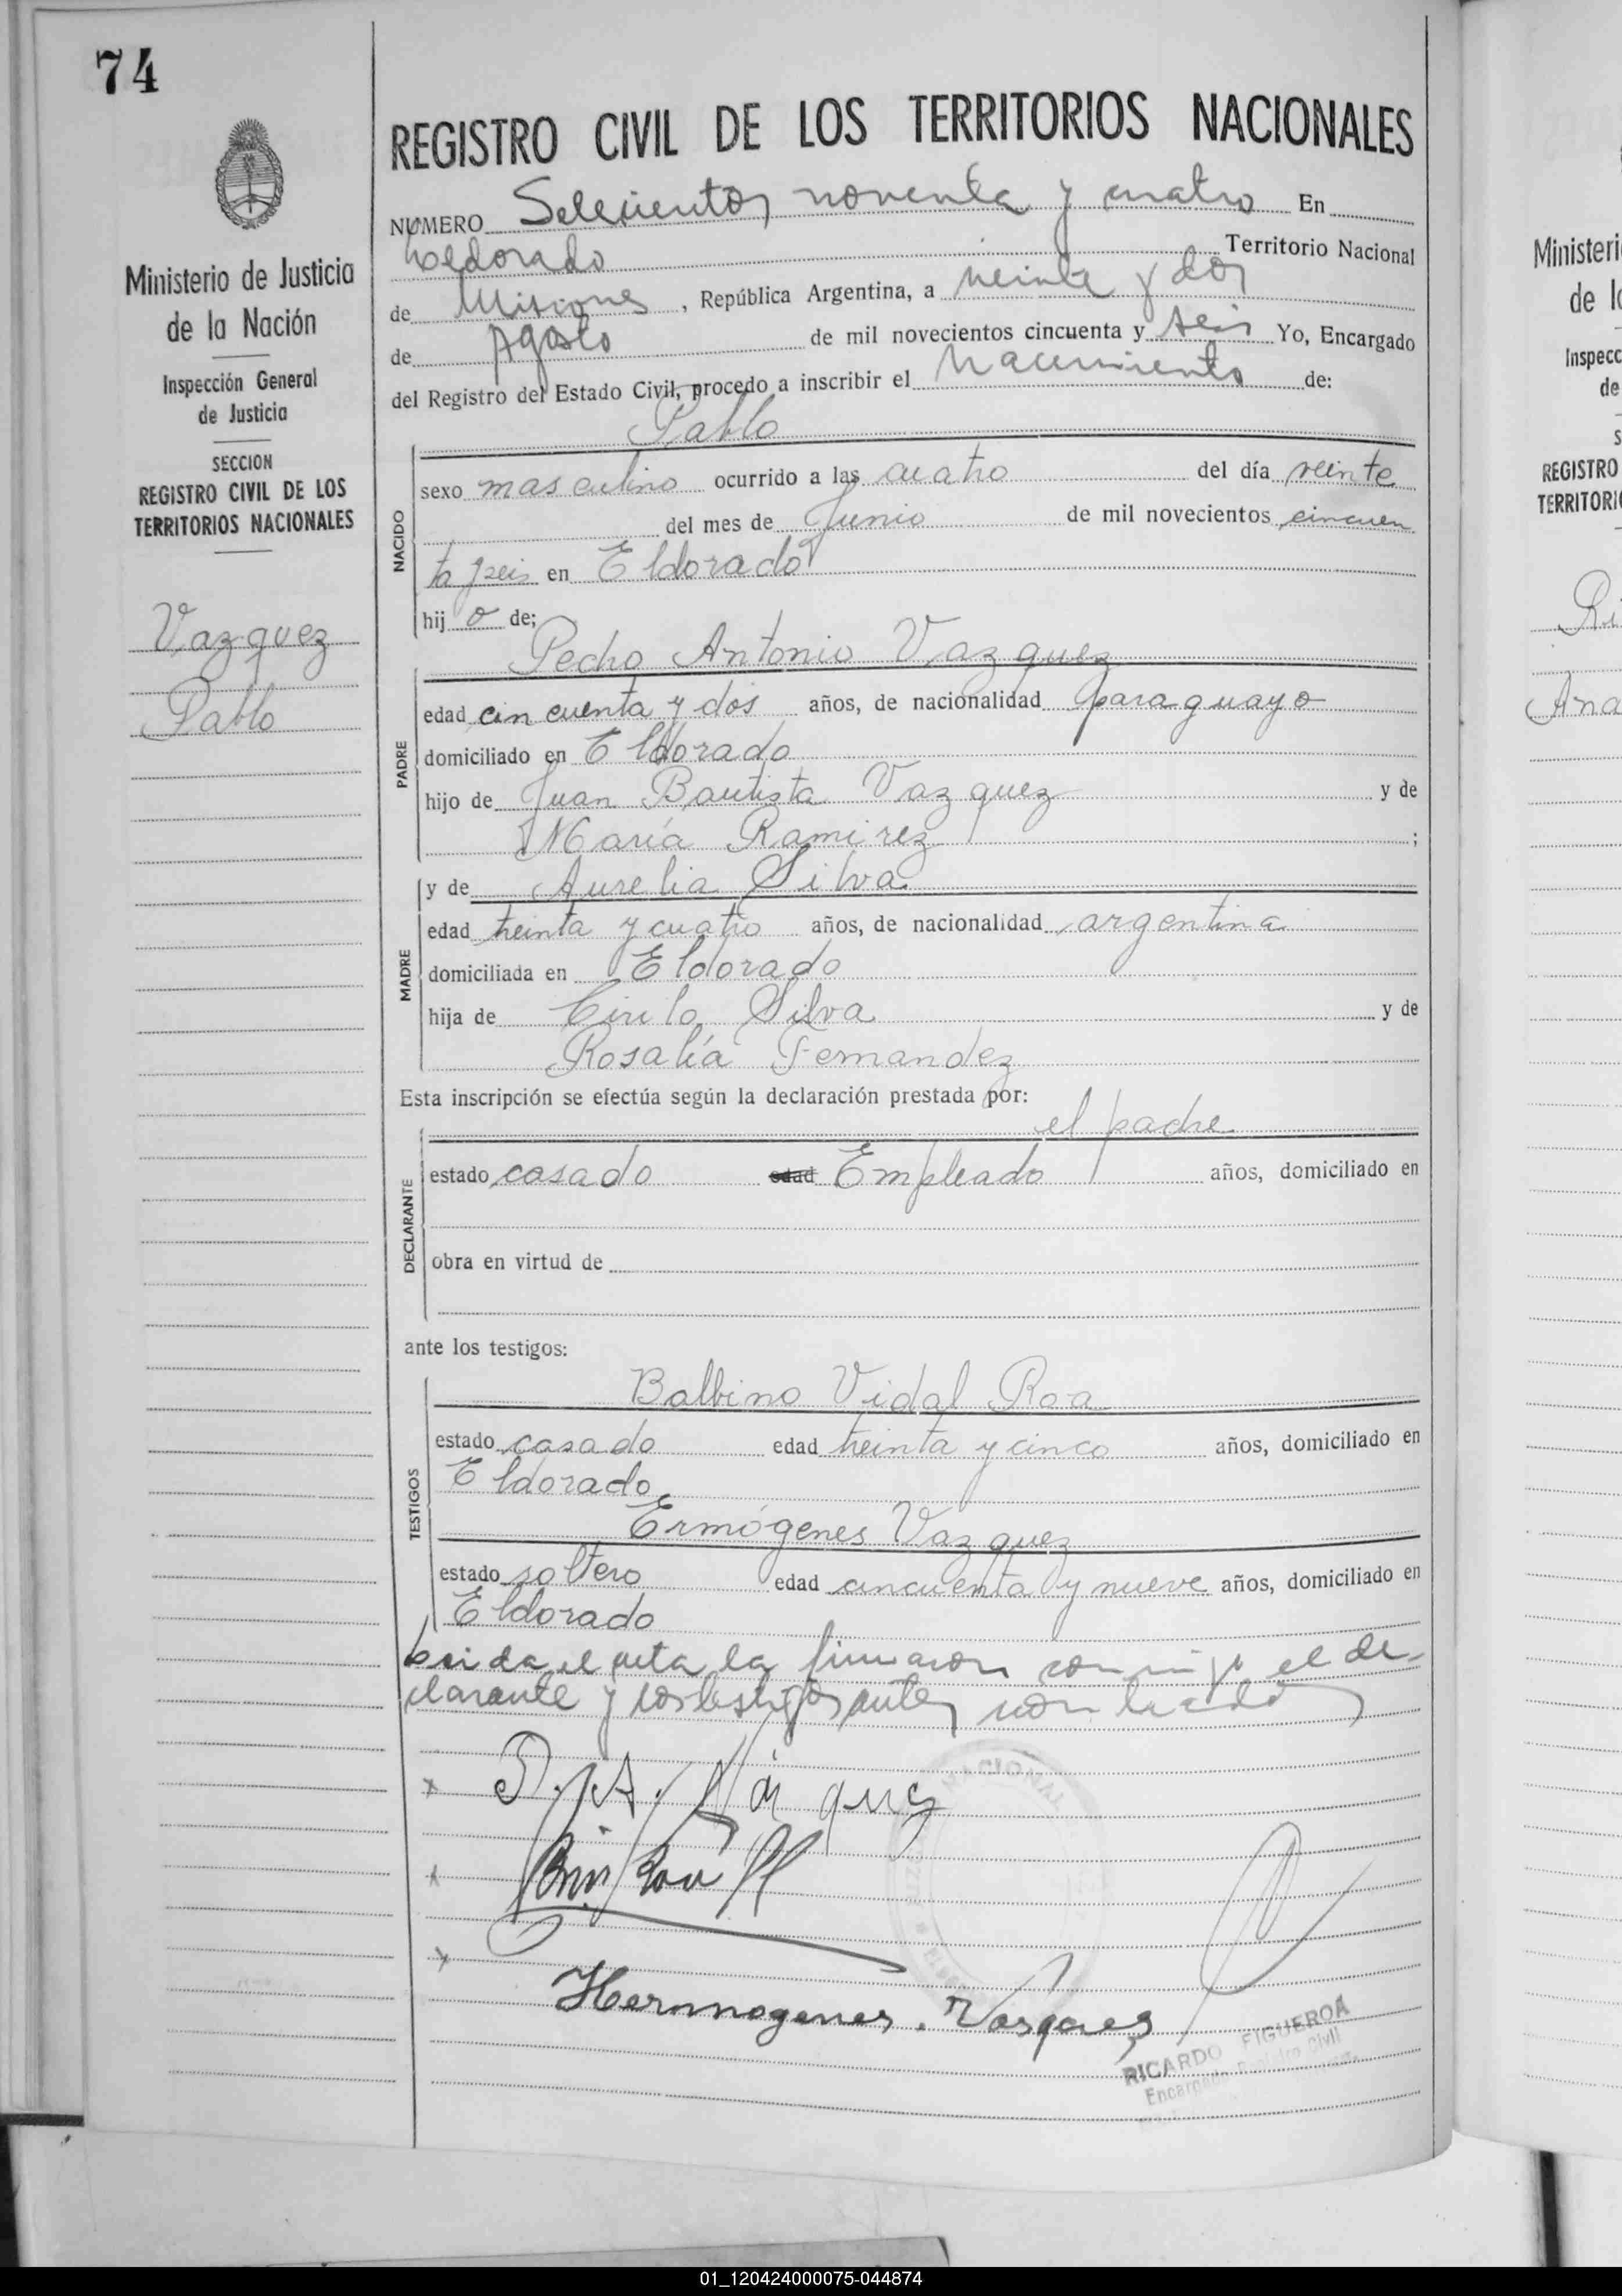 74
REGISTRO CIVIL DE LOS TERRITORIOS NACIONALES
Ministerio de Justicia
de la Nación
Inspección General
de Justicia
SECCION
REGISTRO CIVIL DE LOS
TERRITORIOS NACIONALES
Vazquez
Pablo
NUMERO Setecientos noventa y cuatro En
Eldorado Territorio Nacional
de Misiones, República Argentina, a veinte y dos
de Agosto de mil novecientos cincuenta y seis Yo, Encargado
del Registro del Estado Civil, procedo a inscribir el nacimiento de:
Pablo
NACIDO
sexo masculino ocurrido a las cuatro del día veinte
del mes de Junio de mil novecientos cincuen
ta y seis en Eldorado
hijo de;
Pedro Antonio Vazquez
PADRE
edad cincuenta y dos años, de nacionalidad paraguayo
domiciliado en Eldorado
hijo de Juan Bautista Vazquez y de
María Ramirez ;
MADRE
y de Aurelia Silva
edad treinta y cuatro años, de nacionalidad argentina
domiciliada en Eldorado
hija de Cirilo Silva y de
Rosalía Fernandez
Esta inscripción se efectúa según la declaración prestada por:
el padre
DECLARANTE
estado casado edad Empleado años, domiciliado en
obra en virtud de
ante los testigos:
TESTIGOS
Balbino Vidal Roa
estado casado edad treinta y cinco años, domiciliado en
Eldorado
Ermógenes Vazquez
estado soltero edad cincuenta y nueve años, domiciliado en
Eldorado
Leida el acta la firmaron conmigo el de-
clarante y los testigos antes nombrados
P. A. Vázquez
Hermogenes. Vasques
NACIONAL
RICARDO FIGUEROA
Encargado Registro Civil
Ministeri
de l
Inspecc
de
S
REGISTRO
TERRITORI
Ri
Ana
01_120424000075-044874